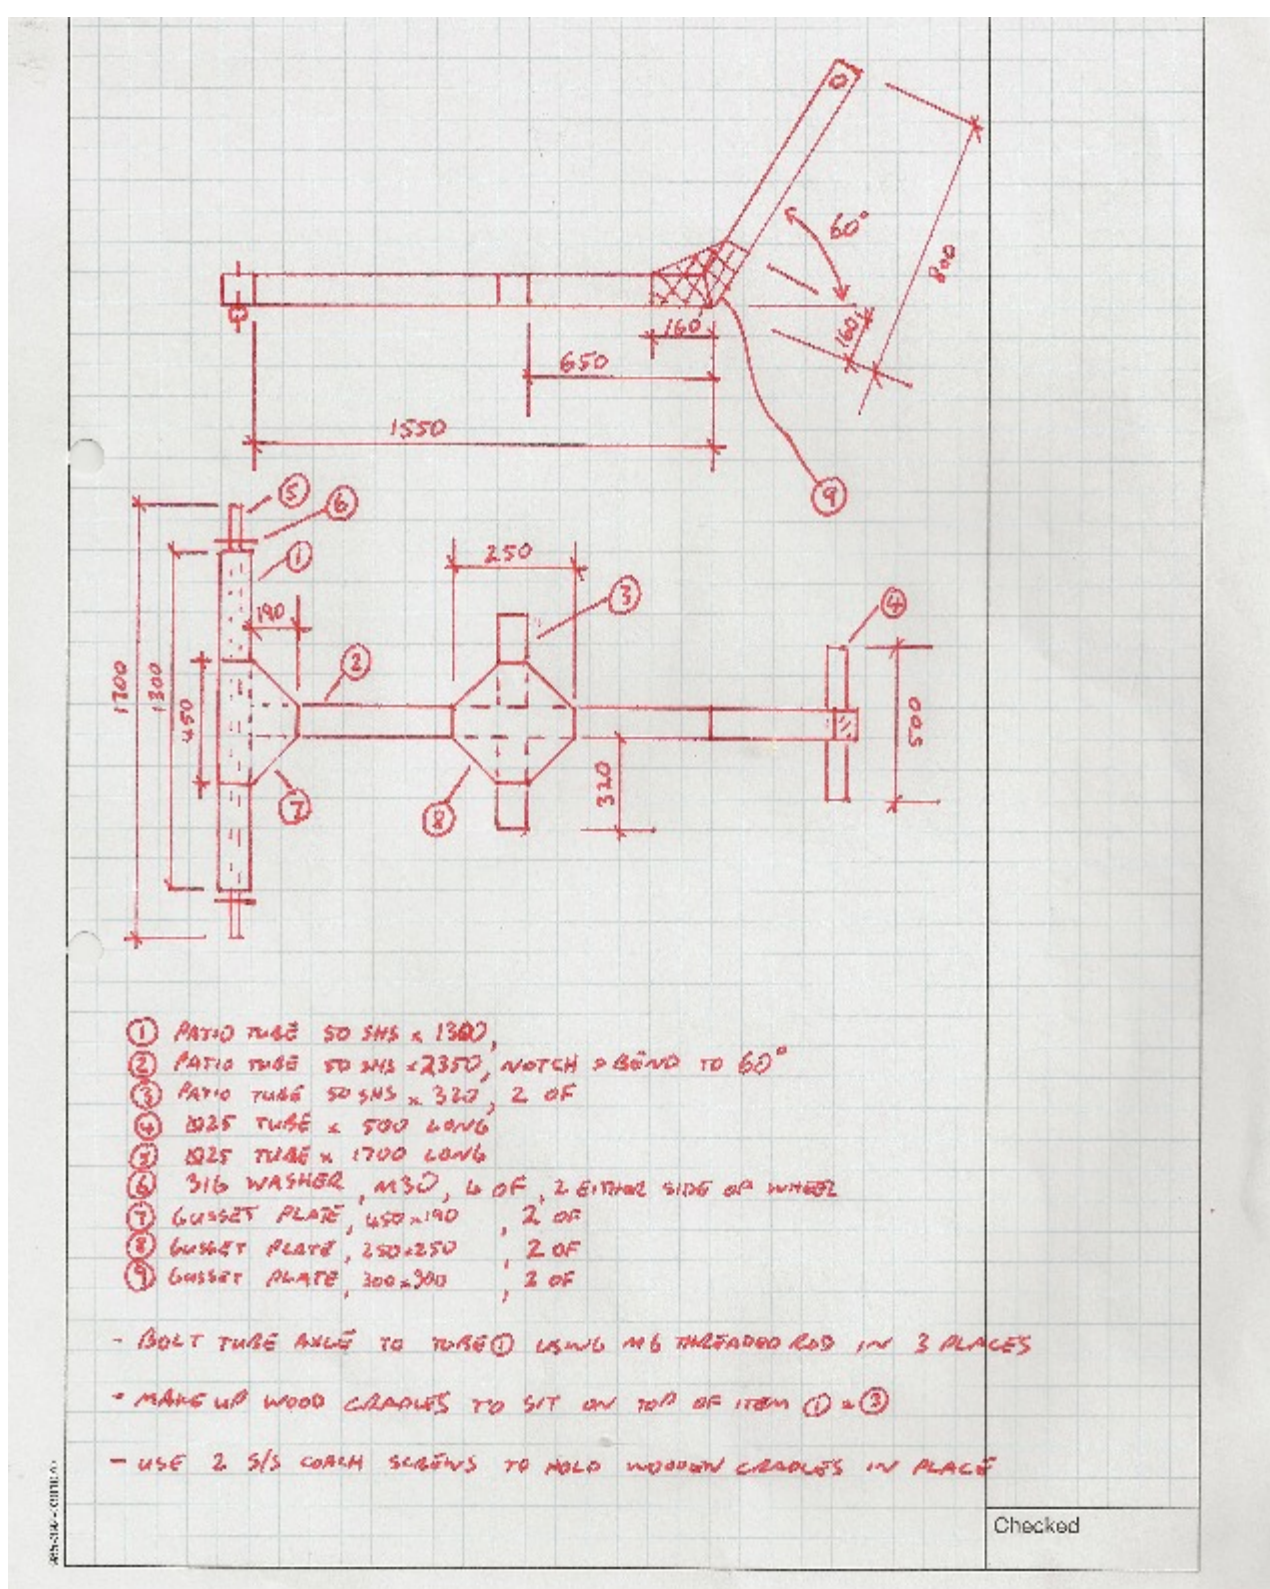 60°
800
160
160
650
1550
9
5
6
1
250
3
190
4
2
1700
1300
450
500
320
7
8
① PATIO TUBE 50 SHS x 1300,
② PATIO TUBE 50 SHS x 2350, NOTCH & BEND TO 60°
③ PATIO TUBE 50 SHS x 320, 2 OF
④ TUBE x 500 LONG
⑤ TUBE x 1700 LONG
⑥ 316 WASHER, M30, 4 OF, 2 EITHER SIDE OF WHEEL
⑦ GUSSET PLATE, 450x190, 2 OF
⑧ GUSSET PLATE, 250x250, 2 OF
⑨ GUSSET PLATE, 300x300, 2 OF
- BOLT TUBE AXLE TO TUBE ① USING M6 THREADED ROD IN 3 PLACES
- MAKE UP WOOD CRADLES TO SIT ON TOP OF ITEM ① & ③
- USE 2 S/S COACH SCREWS TO HOLD WOODEN CRADLES IN PLACE
Checked